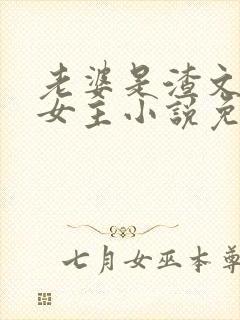 老婆是渣文
女主小说免
七月女巫本尊